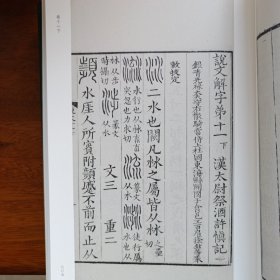 說文解字弟十一下 漢太尉祭酒許慎記
銀青光祿大夫守右散騎常侍上柱國東海縣開國子食邑五百戶臣徐鉉等奉
敕校定
二水也闕凡沝之屬皆从沝之壘切
水行也从沝
突忽也
篆文从水
徒行厲水也从沝从步
時攝切
篆文从水
文三 重二
水厓人所賓附頻蹙不前而止从